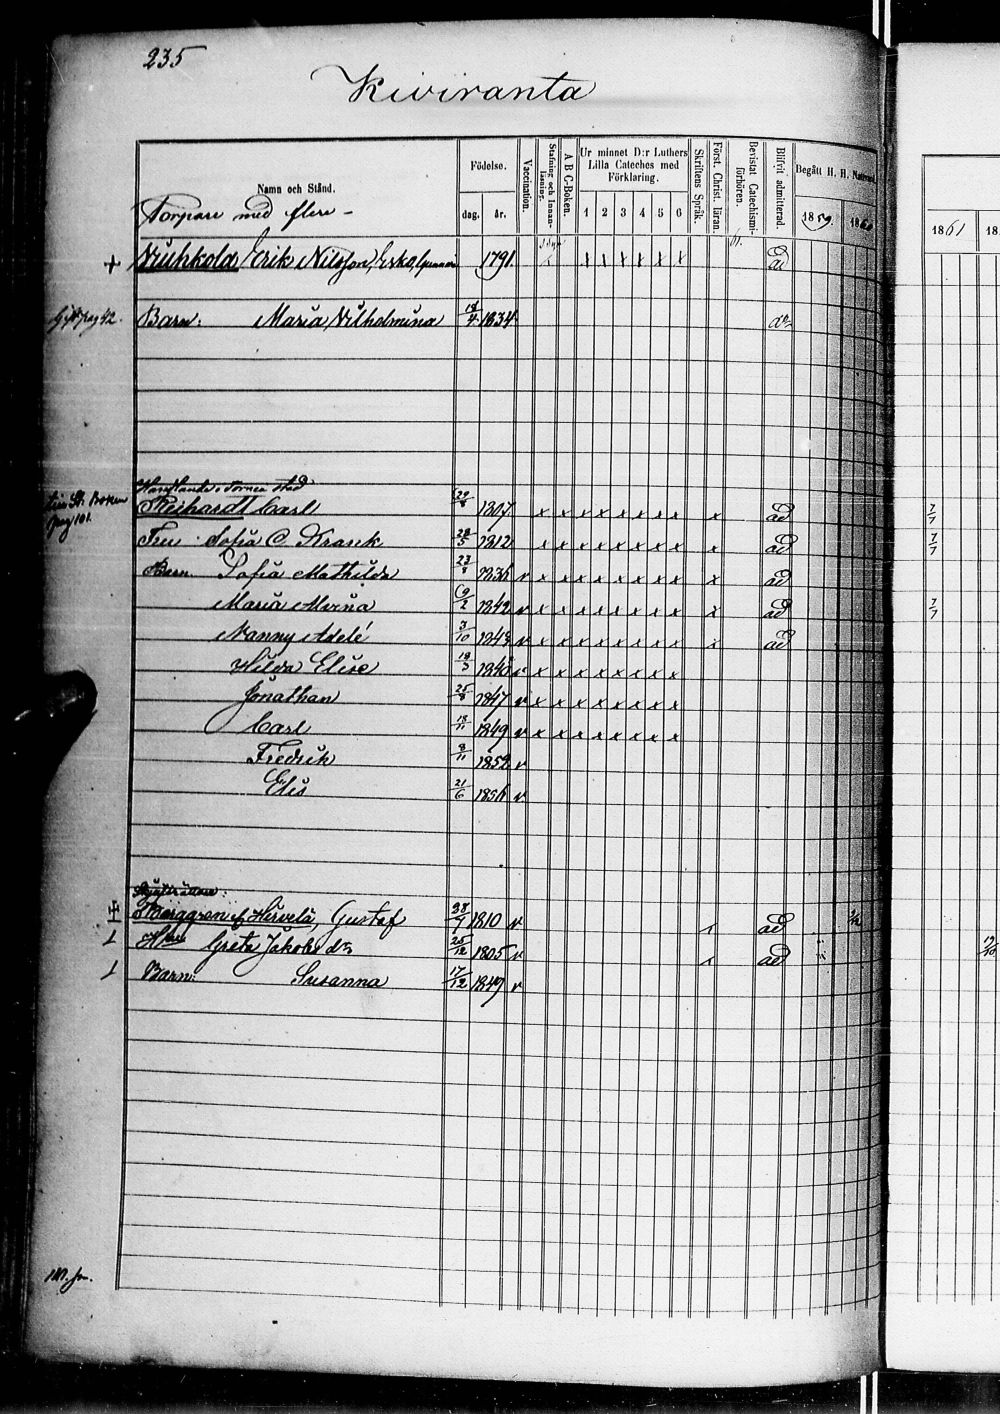 235
Kiviranta
Namn och Stånd.
Födelse.
dag. år.
Vaccination.
Stafning och Innan-läsning.
A B C-Boken.
Ur minnet D:r Luthers Lilla Cateches med Förklaring.
1 2 3 4 5 6
Skriftens Språk.
Först. Christ. läran.
Bevistat Catechismi-förhören.
Blifvit admitterad.
Begått H. H. Nattvard
1859. 1860
1861 18
Torpare med flere -
+ Erik Nilsson, 1791. x x x x x x ad
pag 42. Barn: Maria Vilhelmina 18/4 1834
i Torneå stad
Boken Reihardt Carl 29/8 1807 x x x x x x x x x ad 7/7
pag 101.
Fru Sofia C. Krank 28/5 1812 x x x x x x x x x ad 7/7
Barn Sofia Mathilda 23/8 1836 v x x x x x x x x x ad
Maria 9/2 1842 v x x x x x x x x x ad 7/7
Nanny Adelé 3/10 1843 v x x x x x x x x x ad
Hilda Elise 18/3 1845 v x x x x x x x x
Jonathan 25/8 1847 v x x x x x x x x
Carl 18/11 1849 v x x x x x x x x
Fredrik 8/11 1852 v
Elis 21/6 1856 v
Hirvelä, Gustaf 1810 v ad
Greta Jakobs dr 25/12 1805 v ad
Barn: Susanna 17/12 1849 v